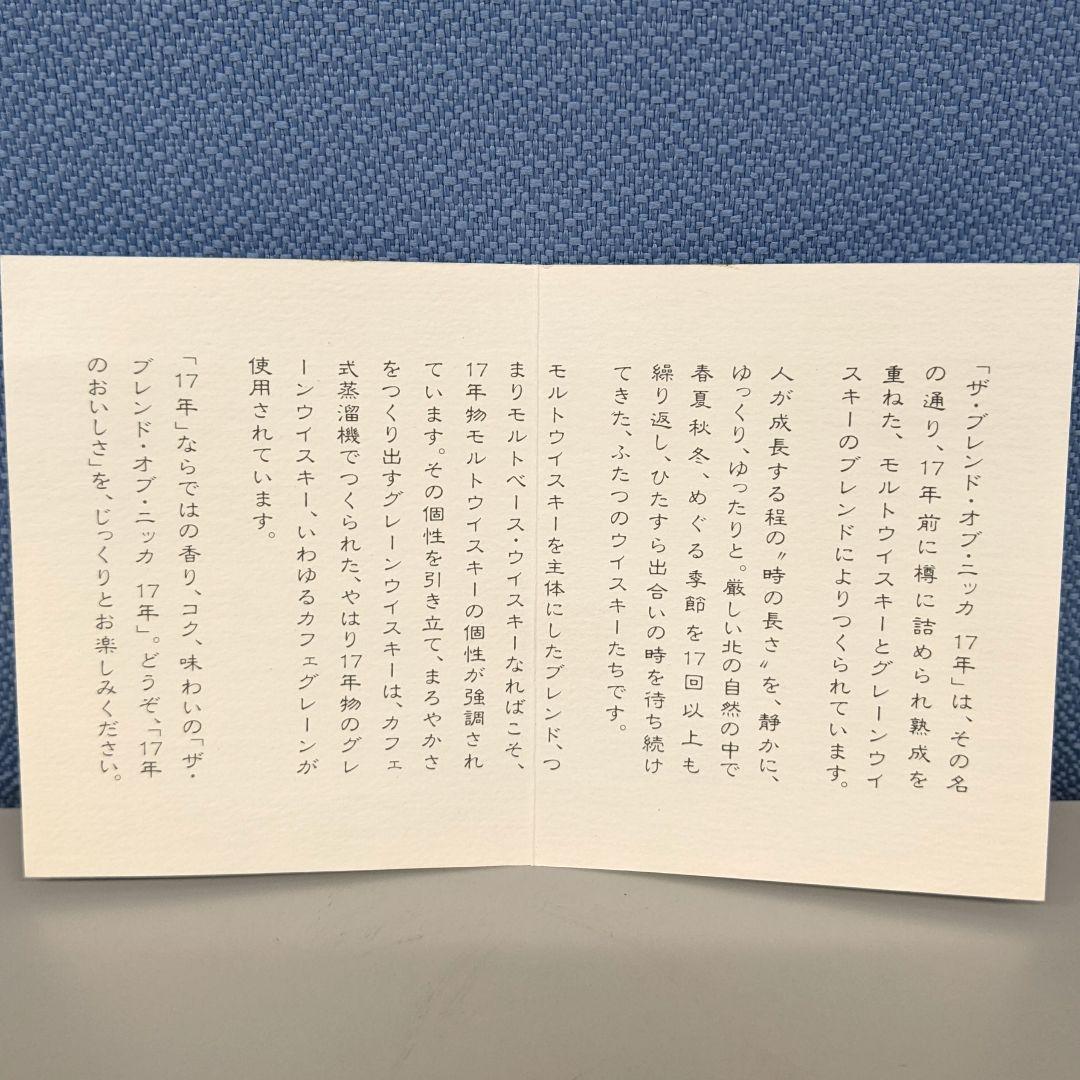 「ザ・ブレンド・オブ・ニッカ 17年」は、その名
の通り、17年前に樽に詰められ熟成を
重ねた、モルトウイスキーとグレーンウイ
スキーのブレンドによりつくられています。
人が成長する程の〝時の長さ〟を、静かに、
ゆっくり、ゆったりと。厳しい北の自然の中で
春夏秋冬、めぐる季節を17回以上も
繰り返し、ひたすら出合いの時を待ち続け
てきた、ふたつのウイスキーたちです。
モルトウイスキーを主体にしたブレンド、つ
まりモルトベース・ウイスキーなればこそ、
17年物モルトウイスキーの個性が強調され
ています。その個性を引き立て、まろやかさ
をつくり出すグレーンウイスキーは、カフェ
式蒸溜機でつくられた、やはり17年物のグレ
ーンウイスキー、いわゆるカフェグレーンが
使用されています。
「17年」ならではの香り、コク、味わいの「ザ・
ブレンド・オブ・ニッカ 17年」。どうぞ、「17年
のおいしさ」を、じっくりとお楽しみください。